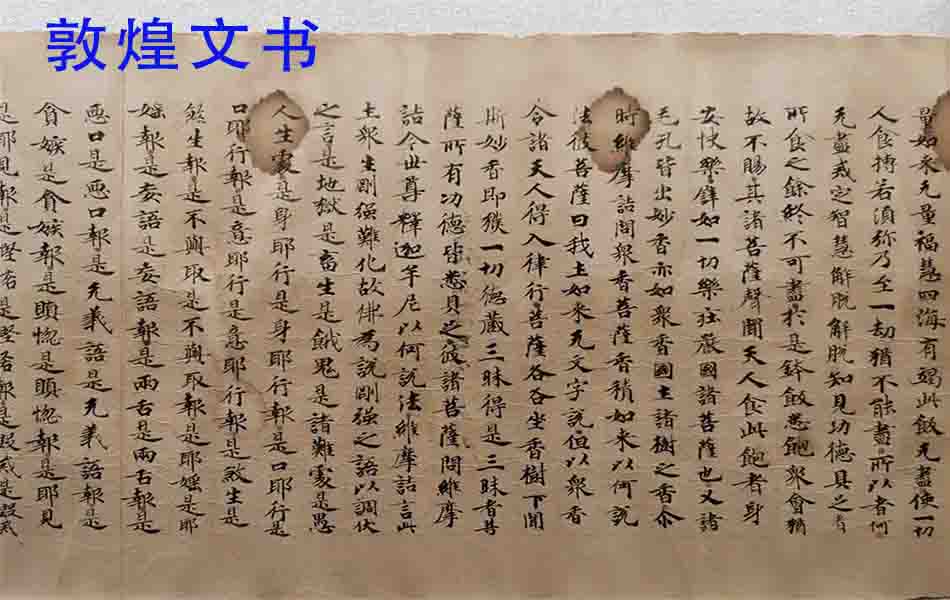 敦煌文书
量如來无量福慧四海有竭此飯无盡使一切
人食揣若須弥乃至一劫猶不能盡所以者何
无盡戒定智慧解脫解脫知見功德具之者
所食之餘終不可盡於是鉢飯悉飽衆會猶
故不賜其諸菩薩聲聞天人食此飯者身
安快樂譬如一切樂莊嚴國諸菩薩也又諸
毛孔皆出妙香亦如衆香國土諸樹之香尒
時維摩詰問衆香菩薩香積如來以何說
法彼菩薩曰我土如來无文字說但以衆香
令諸天人得入律行菩薩各各坐香樹下聞
斯妙香即獲一切德藏三昧得是三昧者菩
薩所有功德皆悉具足彼諸菩薩問維摩
詰今世尊釋迦牟尼以何說法維摩詰言此
土衆生剛强難化故佛為說剛强之語以調伏
之言是地獄是畜生是餓鬼是諸難處是愚
人生處是身耶行是身耶行報是口耶行是
口耶行報是意耶行是意耶行報是煞生是
煞生報是不與取是不與取報是耶婬是耶
婬報是妄語是妄語報是兩舌是兩舌報是
惡口是惡口報是无義語是无義語報是
貪嫉是貪嫉報是瞋惱是瞋惱報是耶見
是耶見報是慳悋是慳悋報是毀戒是毀戒